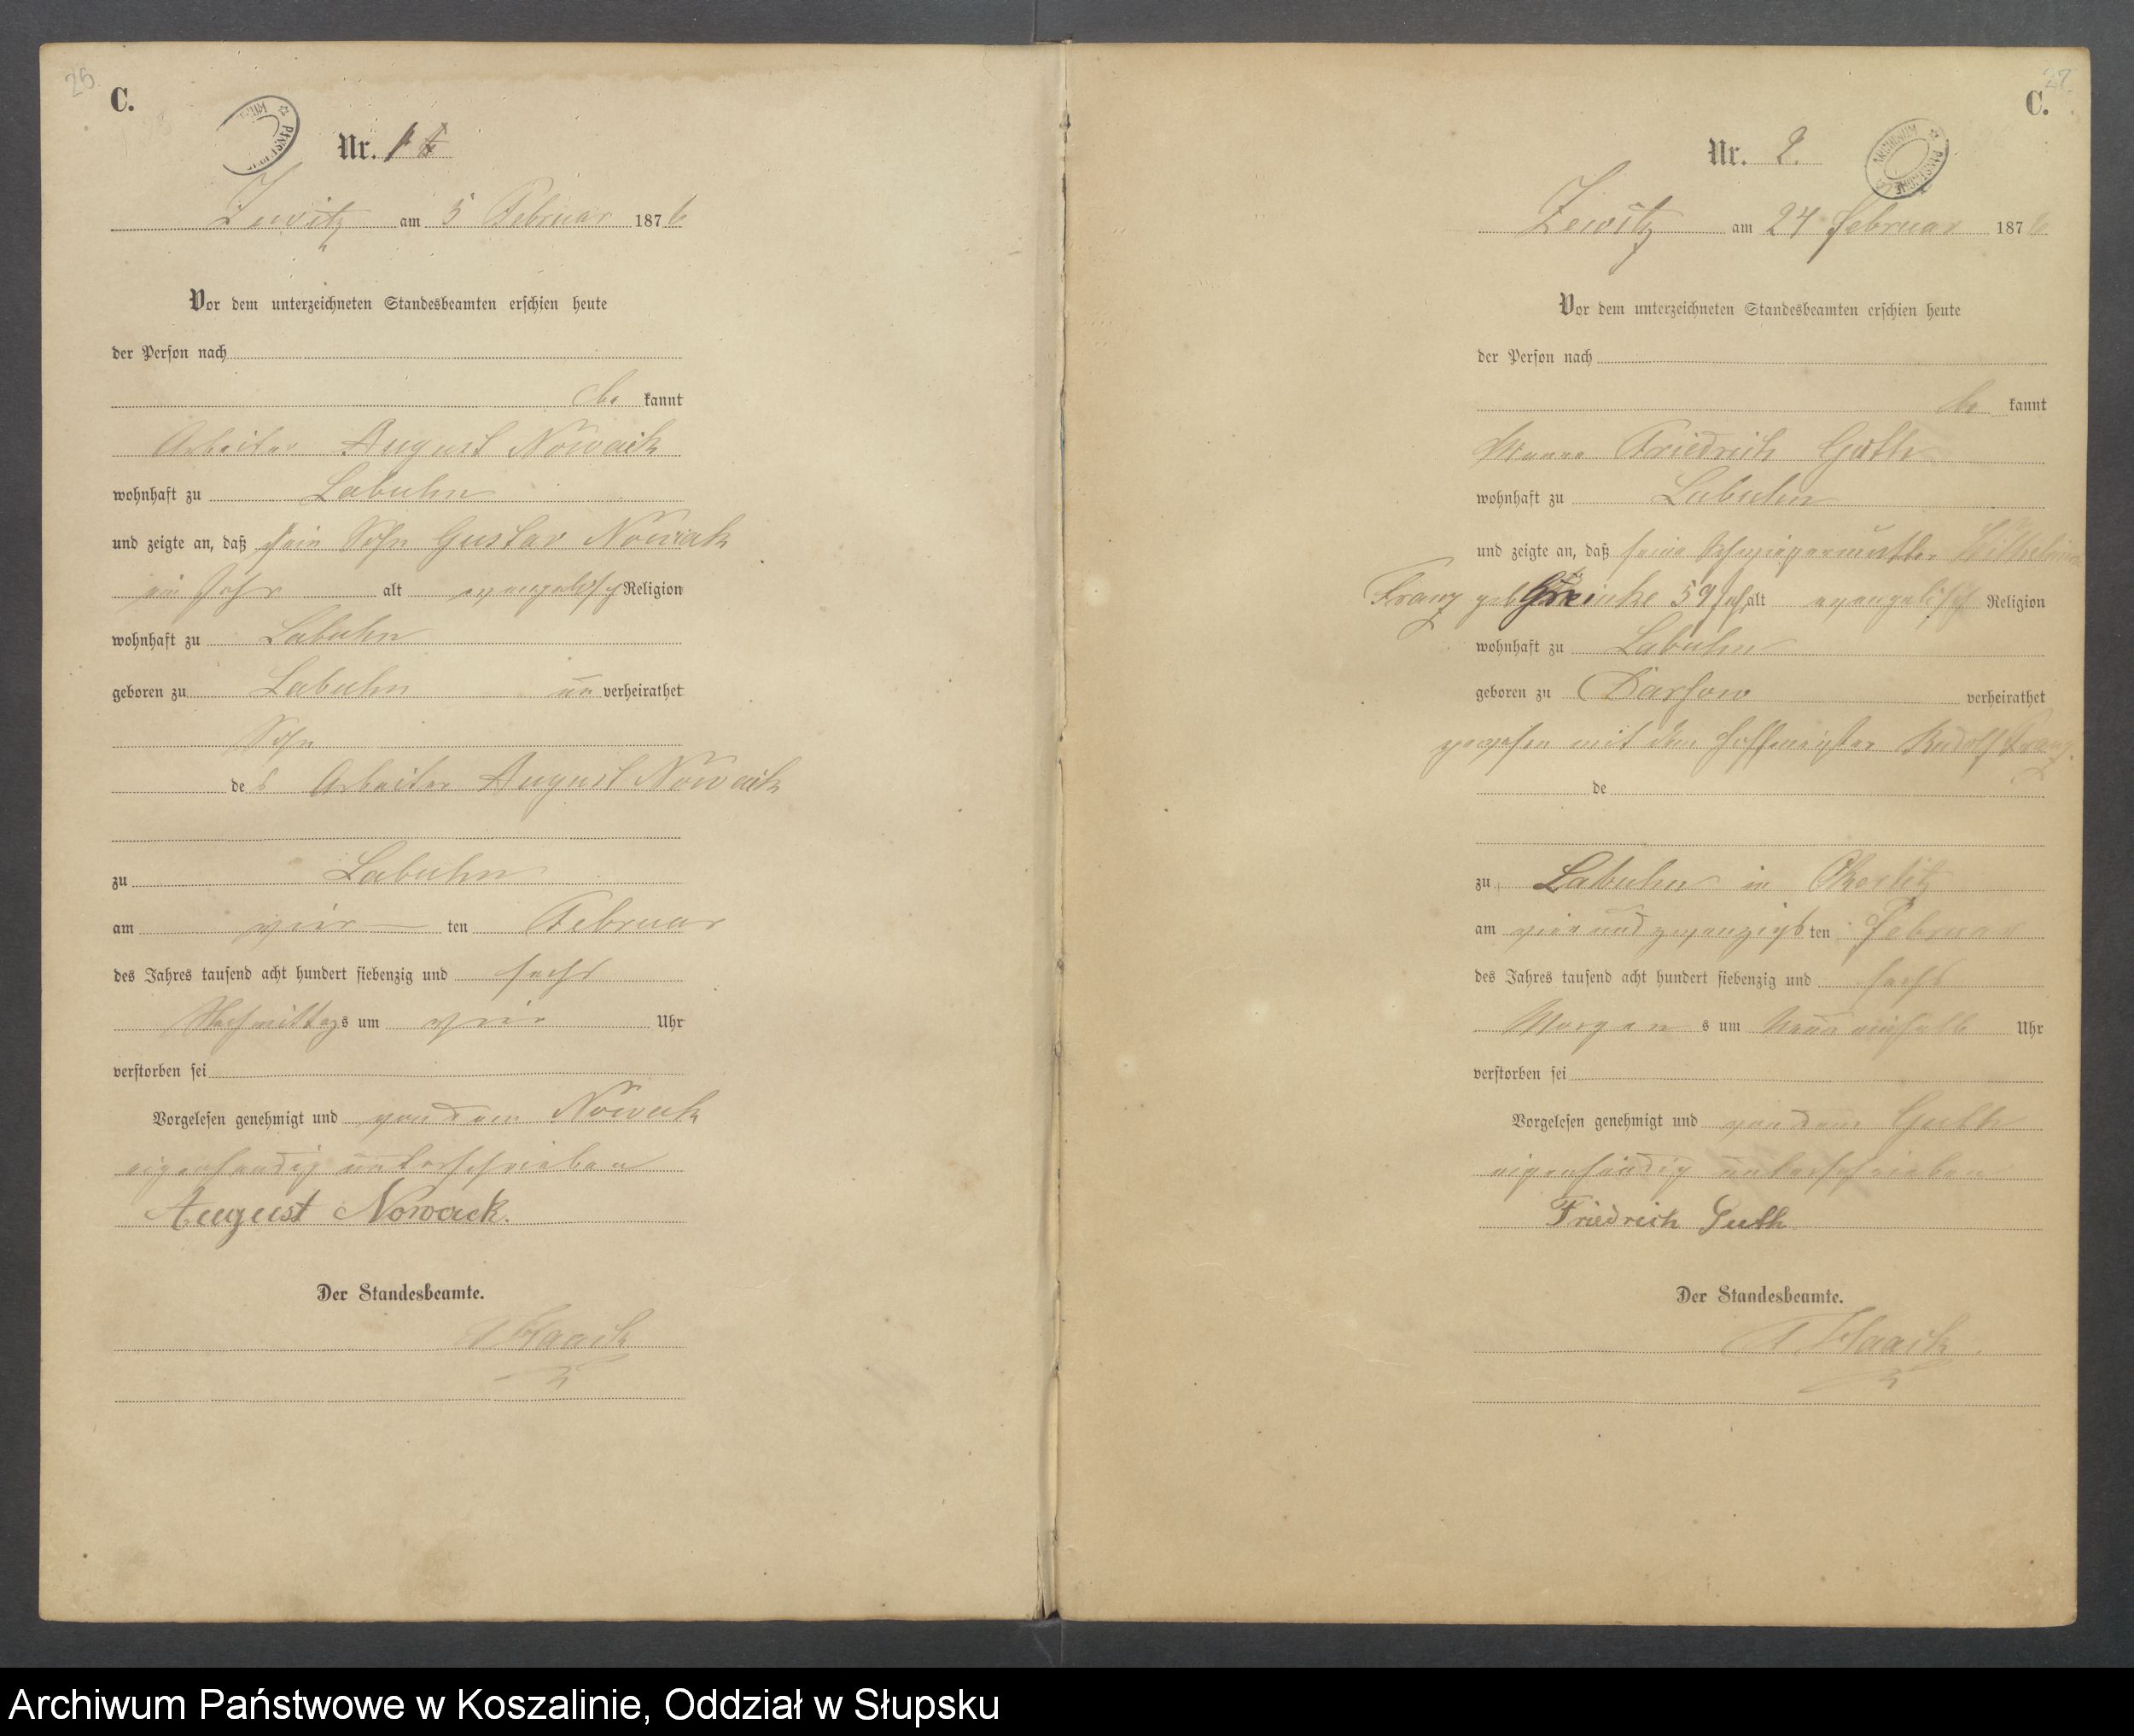 26
C.
ARCHIWUM PAŃSTWOWE
Nr. 1
Zewitz am 5 Februar 1876
Vor dem unterzeichneten Standesbeamten erschien heute
der Person nach
be kannt
Arbeiter August Nowack
wohnhaft zu Labuhn
und zeigte an, daß sein Sohn Gustav Nowak
ein Jahr alt evangelisch Religion
wohnhaft zu Labuhn
geboren zu Labuhn un verheirathet
Sohn
des Arbeiter August Nowack
zu Labuhn
am vier ten Februar
des Jahres tausend acht hundert siebenzig und sechs
Nachmittags um vier Uhr
verstorben sei
Vorgelesen genehmigt und von dem Nowak
eigenhändig unterschrieben
August Nowack.
Der Standesbeamte.
Haack
27
C.
ARCHIWUM PAŃSTWOWE
Nr. 2.
Zewitz am 24 Februar 1876
Vor dem unterzeichneten Standesbeamten erschien heute
der Person nach
be kannt
Friedrich Guth
wohnhaft zu Labuhn
und zeigte an, daß seine Schwiegermutter Wilhelmine
Franz geb 59 Jah alt evangelisch Religion
wohnhaft zu Labuhn
geboren zu Darsow verheirathet
gewesen mit dem Hofmeister Rudolf Franz
de
zu Labuhn in
am vier und zwanzigsten Februar
des Jahres tausend acht hundert siebenzig und sechs
Morgen s um Neun einhalb Uhr
verstorben sei
Vorgelesen genehmigt und von dem Guth
eigenhändig unterschrieben
Friedrich Guth.
Der Standesbeamte.
Haack.
Archiwum Państwowe w Koszalinie, Oddział w Słupsku